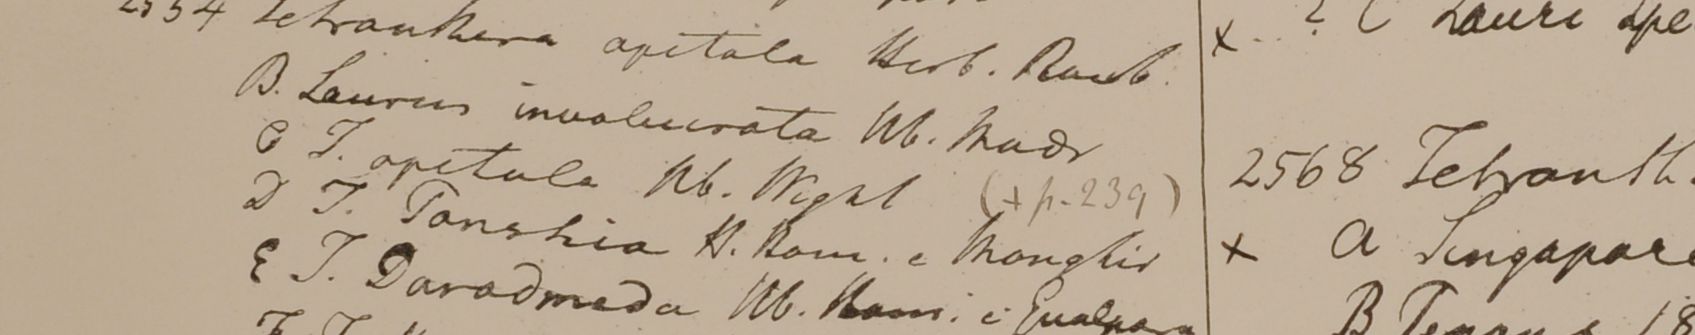 2554 Tetranthera apetala Herb. Roxb.
B. Laurus involucrata Hb. Madr
C T. apetala Hb. Wight (+ p. 239)
D T. Tonshia H. Ham. e Monghir
E T. Daradmeda Hb. Ham. e Gualpara
F T.
x ? C Lauri spe
2568 Tetranth.
x a Singapore
B Penang 18